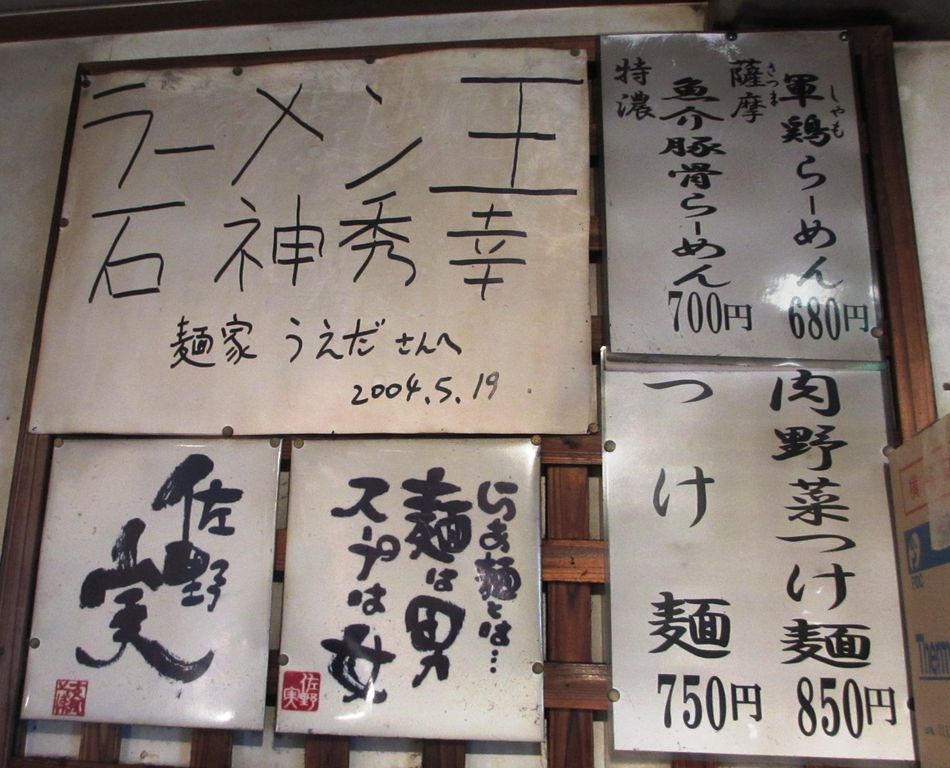 ラーメン王
石神秀幸
麺家 うえださんへ
2004.5.19
薩摩軍鶏らーめん
さつま
しゃも
680円
特濃魚介豚骨らーめん
700円
肉野菜つけ麺
850円
つけ麺
750円
らぁ麺とは…
麺は男
スープは女
佐野実
佐野
実